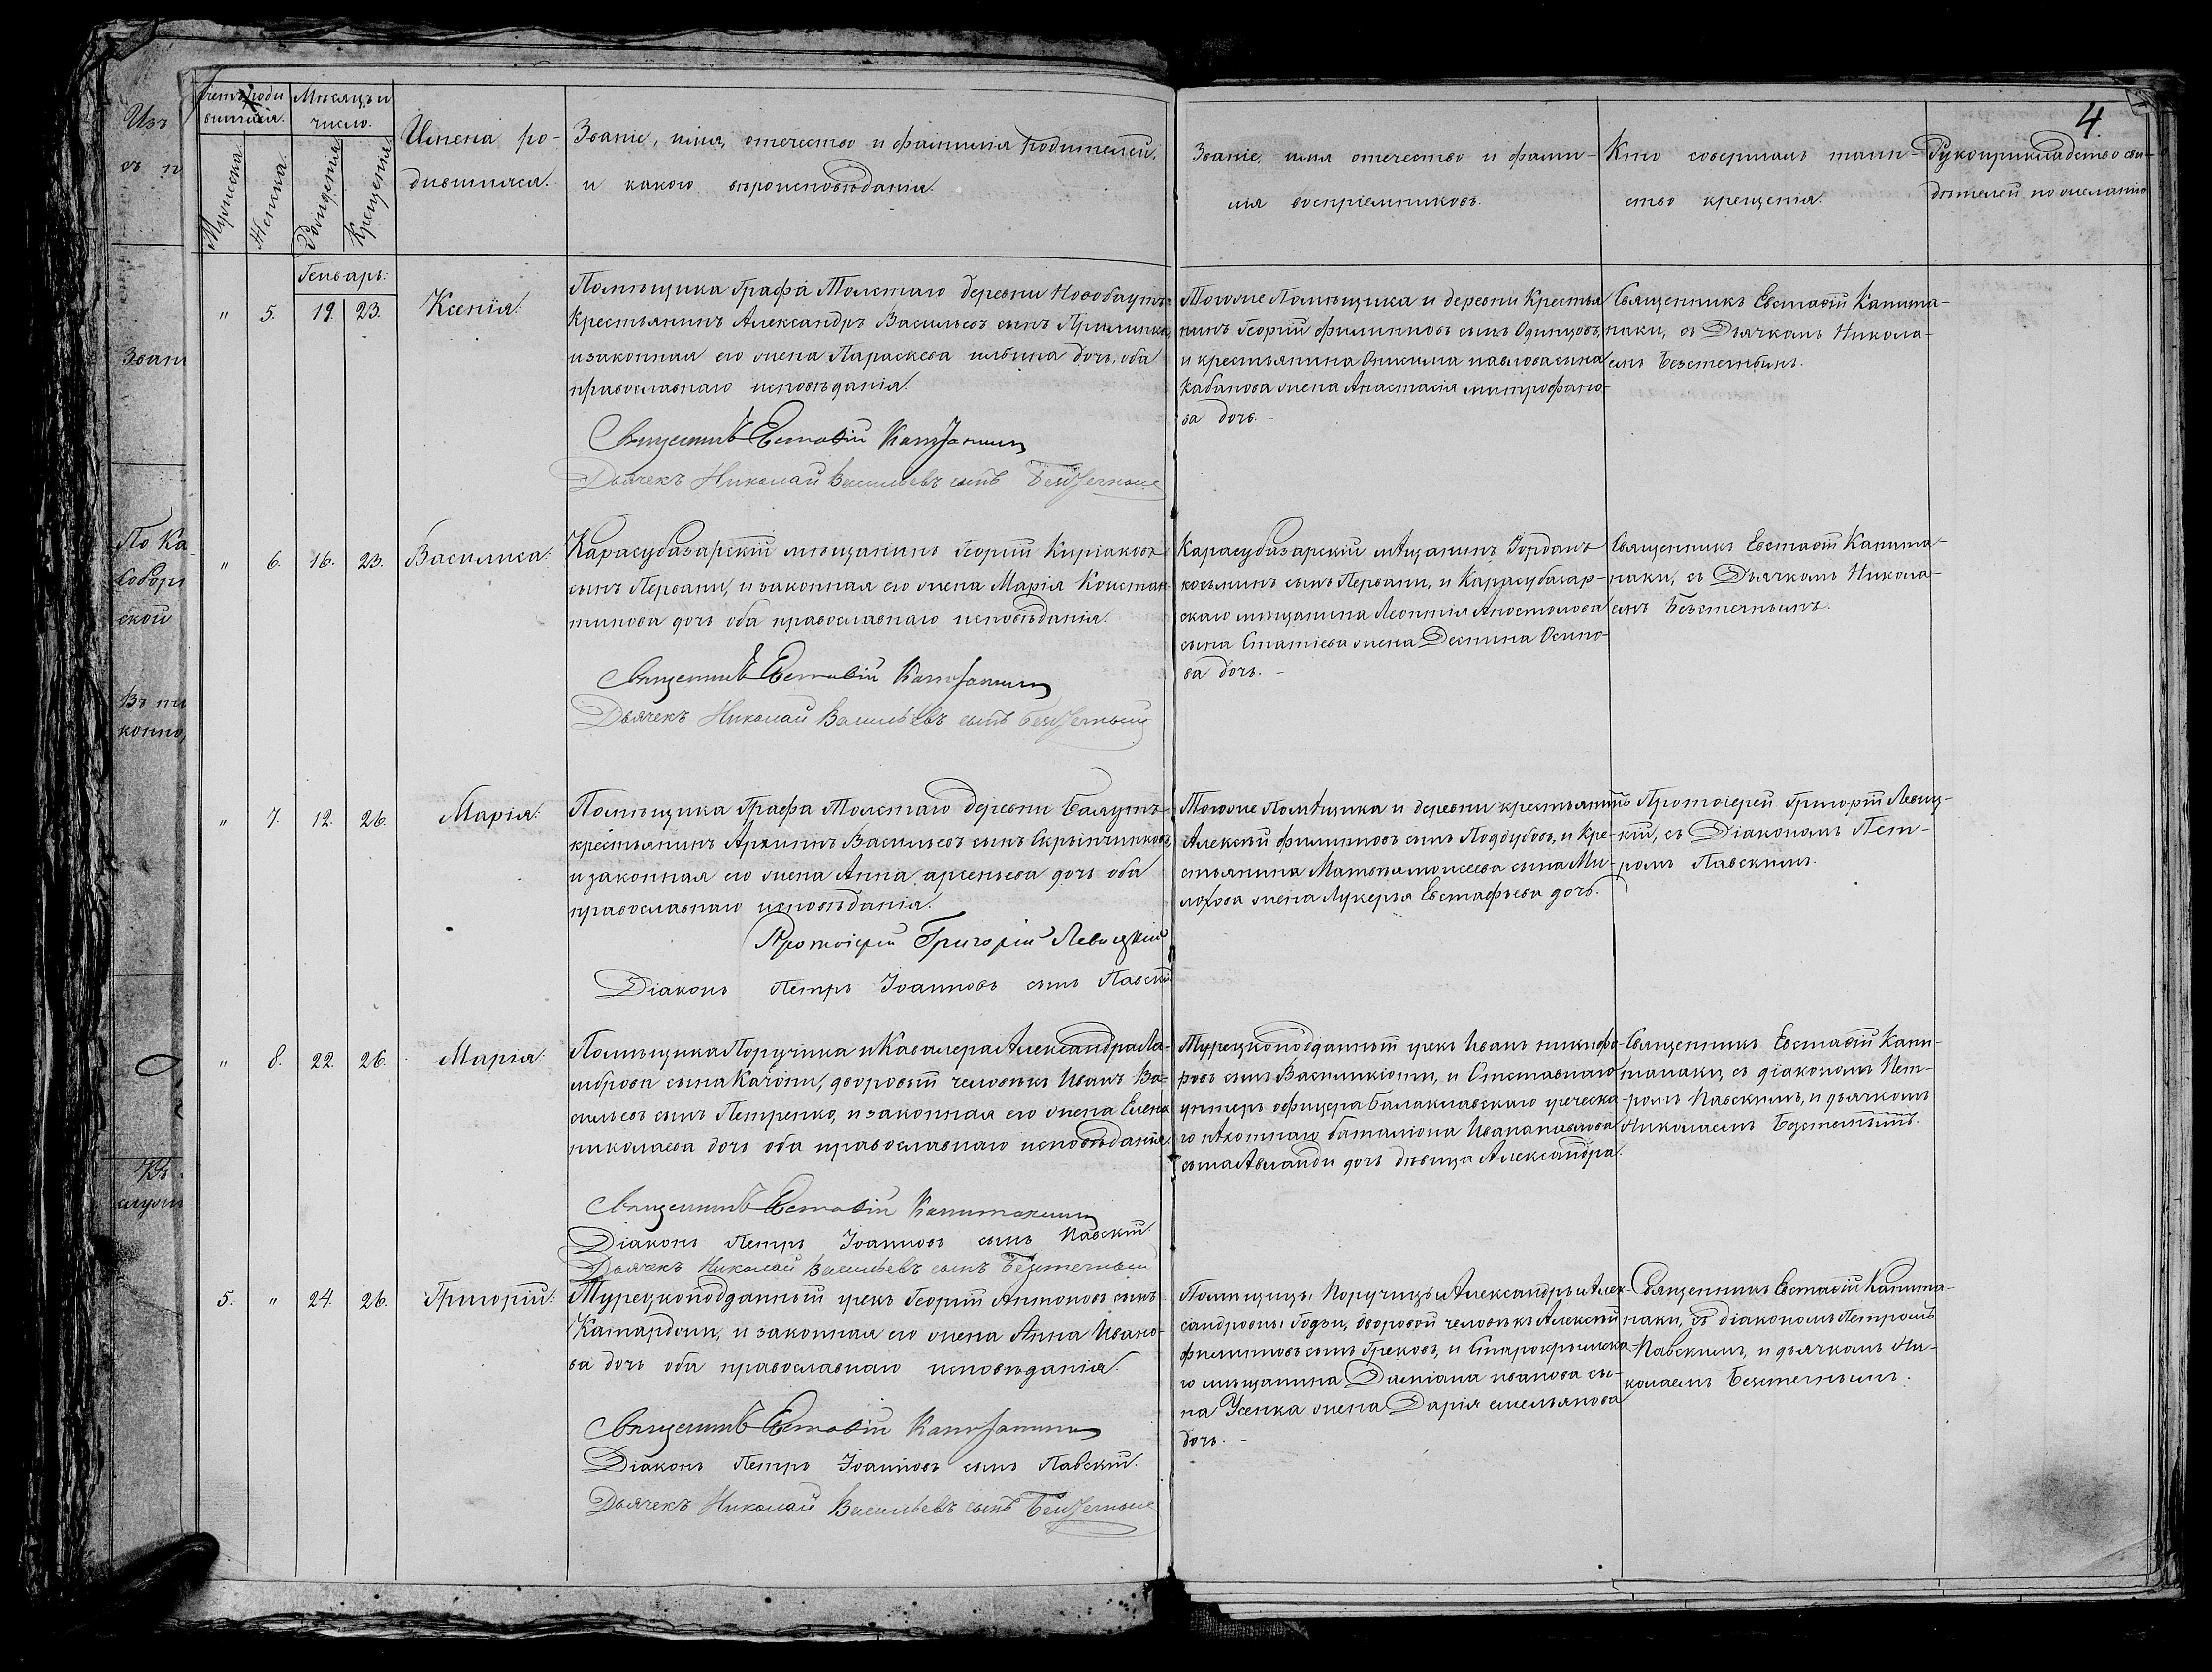 4
Счетъ роди
вшихся.
Мѣсяцъ и
число.
Мужеска.
Женска.
Рожденія
Крещенія
Имена ро-
дившихся.
Званіе, имя, отечество и фамилія родителей,
и какого вѣроисповѣданія.
Званіе, имя отечество и фами-
лія воспріемниковъ.
Кто совершалъ таин-
ство крещенія.
Рукоприкладство сви-
дѣтелей по желанію
Генварь:
" 5. 19. 23. Ксенія:
Помѣщика Графа Толстаго деревни
Крестьянинъ Александръ Васильевъ сынъ
и законная его жена Параскева ильина дочь, оба
православнаго исповѣданія.
Священникъ Евстафій Капитанаки
Дьячекъ Николай Васильевъ сынъ Безстетный
Тогоже Помѣщика и деревни Крестья
нинъ Георгій филипповъ сынъ Одинцовъ,
и крестьянина Онисима павлова сына
Кабанова жена Анастасія митрофано-
ва дочь. -
Священникъ Евстафій Капита-
наки, съ Дьячкомъ Никола-
емъ Безстетнымъ.
" 6. 16. 23. Василиса:
Карасубазарскій мѣщанинъ Георгій Киріаковъ
сынъ Первани, и законная его жена Марія Констан-
тинова дочь оба православнаго исповѣданія.
Священникъ Евстафій Капитанаки
Дьячекъ Николай Васильевъ сынъ Безстетный
Карасубазарскій мѣщанинъ Іорданъ
косьминъ сынъ Первани, и Карасубазар-
скаго мѣщанина Леонтія Апостолова
сына Статіева жена Деспина Осипо-
ва дочь. -
Священникъ Евстафій Капита-
наки, съ Дьячкомъ Никола-
емъ Безстетнымъ.
" 7. 12. 26. Марія:
Помѣщика Графа Толстаго деревни
крестьянинъ Архипъ Васильевъ сынъ
и законная его жена Анна арсеньева дочь оба
православнаго исповѣданія.
Протоіерей Григорій Левицкій
Діаконъ Петръ Іоанновъ сынъ Павскій
Тогоже Помѣщика и деревни крестьянинъ
Алексѣй филипповъ сынъ Поддубовъ, и Кре-
стьянина Матвѣя моисеева сына Ми-
лохова жена Лукерья Евстафьева дочь.
Протоіерей Григорій Левиц-
кій, съ Діакономъ Пет-
ромъ Павскимъ.
" 8. 22. 26. Марія:
Помѣщика Поручика и Кавалера Александра Ла-
мброва сына Качони, дворовый человѣкъ Иванъ Ва-
сильевъ сынъ Петренко, и законная его жена Елена
николаева дочь оба православнаго исповѣданія.
Священникъ Евстафій Капитанаки
Діаконъ Петръ Іоанновъ сынъ Павскій.
Дьячекъ Николай Васильевъ сынъ Безстетный
Турецкоподданный грекъ Иванъ никифо-
ровъ сынъ Василикіоти, и Отставнаго
унтеръ офицера Балаклавскаго греческа
го пѣхотнаго баталіона Ивана павлова
сына Авланди дочь дѣвица Александра.
Священникъ Евстафій Капи-
танаки, съ діакономъ Пет-
ромъ Павскимъ, и дьячкомъ
Николаемъ Безстетнымъ.
5. " 24. 26. Григорій:
Турецкоподданный грекъ Георгій Антоновъ сынъ
Катардоли, и законная его жена Анна Ивано-
ва дочь оба православнаго исповѣданія.
Священникъ Евстафій Капитанаки
Діаконъ Петръ Іоанновъ сынъ Павскій.
Дьячекъ Николай Васильевъ сынъ Безстетный
Помѣщицы Поручицы Александры Алек-
сандровны Годзи, дворовой человѣкъ Алексѣй
филиповъ сынъ Грековъ, и Старокрымска-
го мѣщанина Даміана иванова сы-
на Усенка жена Дарія емельянова
дочь. -
Священникъ Евстафій Капита-
наки, съ діакономъ Петромъ
Павскимъ, и дьячкомъ Ни-
колаемъ Безстетнымъ.